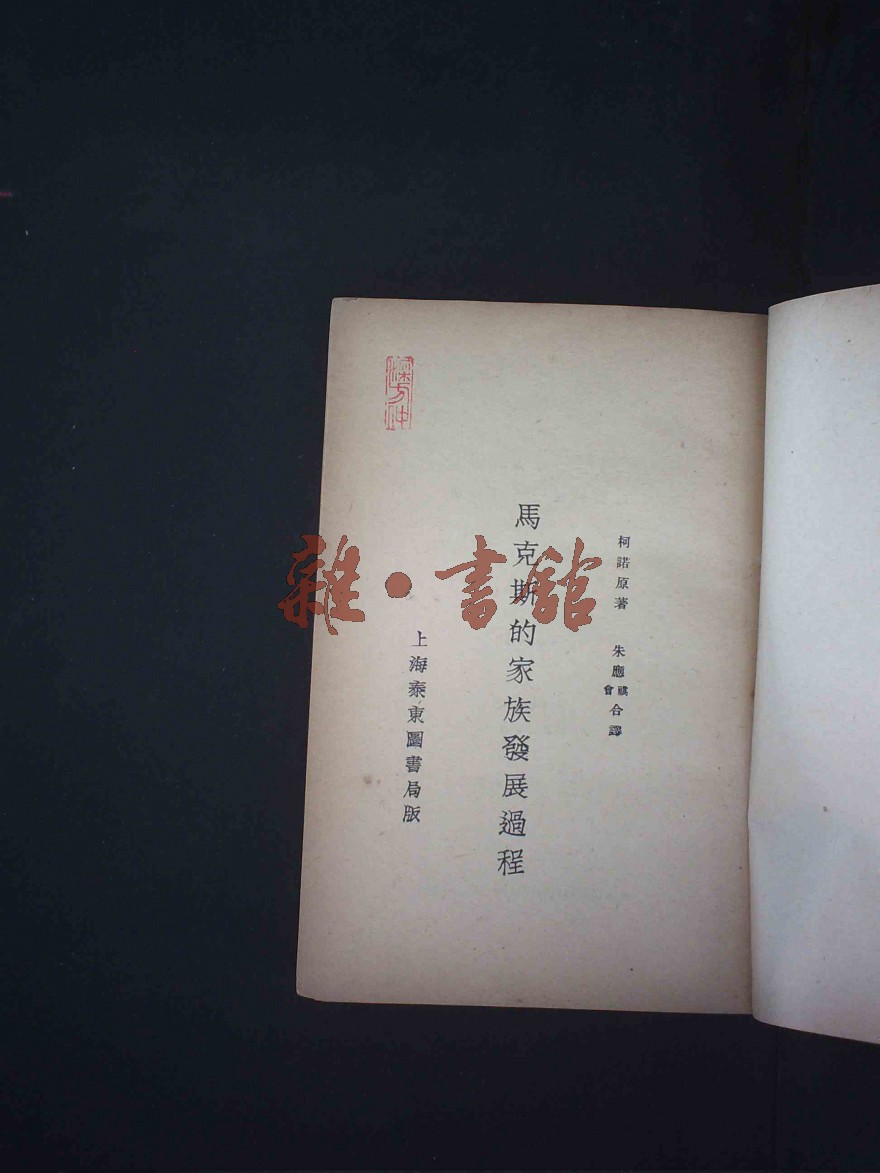 柯諾原著 朱應祺會合譯
馬克斯的家族發展過程
上海泰東圖書局版
梁方仲
雜·書館